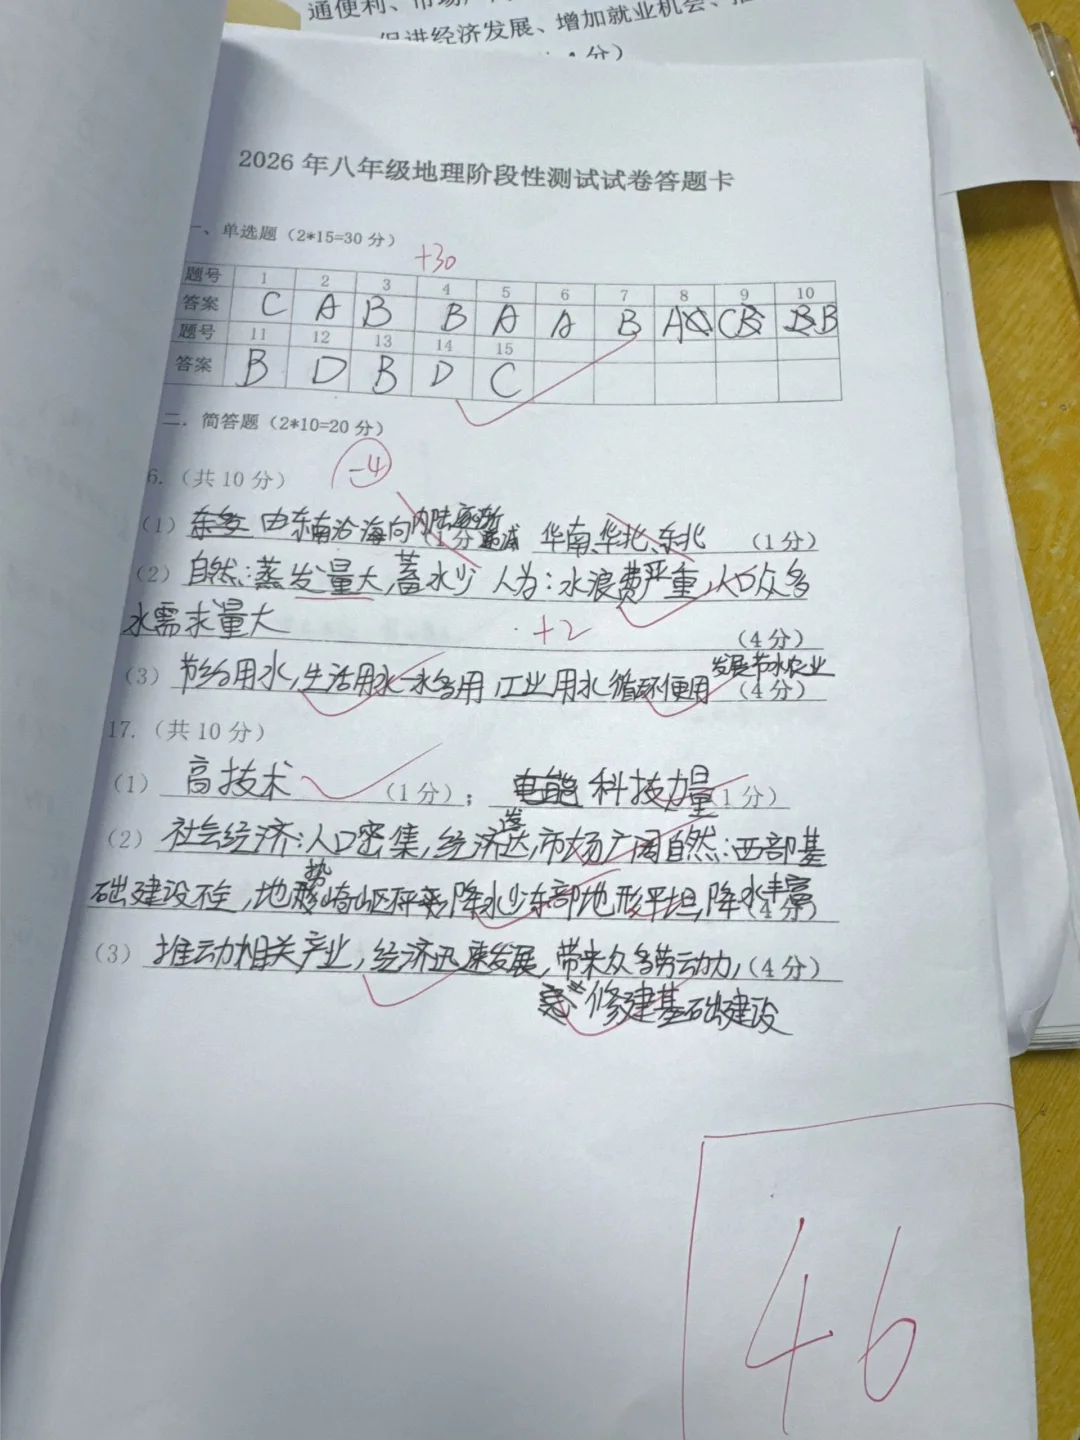 通便利、市场
促进经济发展、增加就业机会、
分）
2026 年八年级地理阶段性测试试卷答题卡
一、单选题（2*15=30 分）
+30
题号 1 2 3 4 5 6 7 8 9 10
答案 C A B B A A B A C B
题号 11 12 13 14 15
答案 B D B D C
二．简答题（2*10=20 分）
-4
6.（共 10 分）
（1） 由东南沿海向内陆逐渐递减（1 分 华南、华北、东北 （1 分）
（2） 自然：蒸发量大，蓄水少 人为：水浪费严重，人口众多
水需求量大 （4 分）
+2
（3） 节约用水，生活用水一水多用，工业用水循环使用 发展节水农业 （4 分）
17.（共 10 分）
（1） 高技术 （1 分）； 科技力量（1 分）
（2） 社会经济：人口密集，经济发达，市场广阔自然：西部基
础建设不全，地势崎岖 降水少东部地形平坦，降水丰富（4 分）
（3） 推动相关产业，经济迅速发展，带来众多劳动力，（4 分）
修建基础建设
46